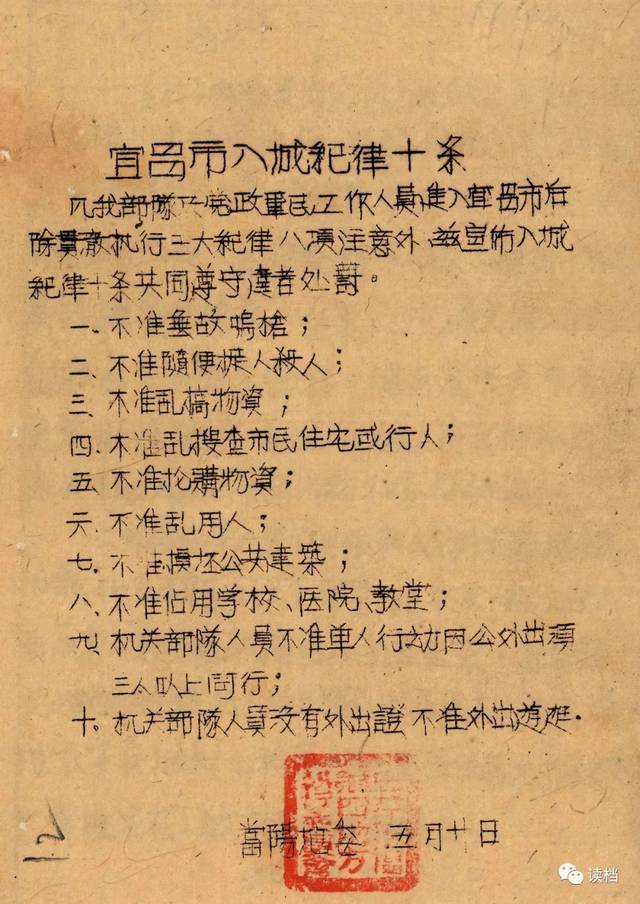 宜昌市入城纪律十条
凡我部隊及党政軍民工作人員進入宜昌市后
除貫澈执行三大纪律八項注意外、茲宣佈入城
纪律十条共同尊守違者处罸。
一、不准無故鳴槍；
二、不准隨便捉人殺人；
三、不准乱搞物資；
四、不准乱搜查市民住宅或行人；
五、不准抢購物資；
六、不准乱用人；
七、不准損坯公共建築；
八、不准佔用学校、医院、教堂；
九、机关部隊人員不准单人行动因公外出須
三人以上同行；
十、机关部隊人員没有外出證不准外出遊逛．
當陽地委 五月十日
12
读档